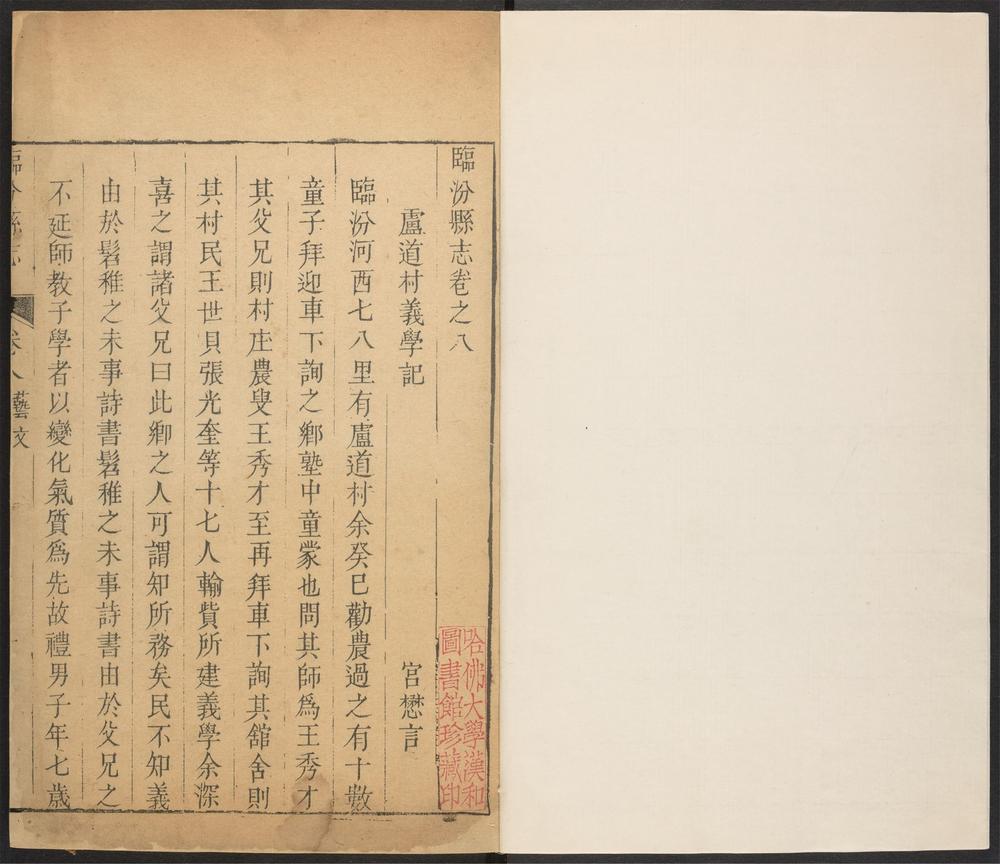 臨汾縣志卷之八
盧道村義學記
宮懋言
臨汾河西七八里有盧道村余癸巳勸農過之有十數
童子拜迎車下詢之鄉塾中童蒙也問其師爲王秀才
其父兄則村庄農叟王秀才至再拜車下詢其舘舍則
其村民王世貝張光奎等十七人輸貲所建義學余深
喜之謂諸父兄曰此鄉之人可謂知所務矣民不知義
由於髫稚之未事詩書髫稚之未事詩書由於父兄之
不延師教子學者以變化氣質爲先故禮男子年七歲
臨汾縣志 卷八 藝文
哈佛大學漢和
圖書館珍藏印